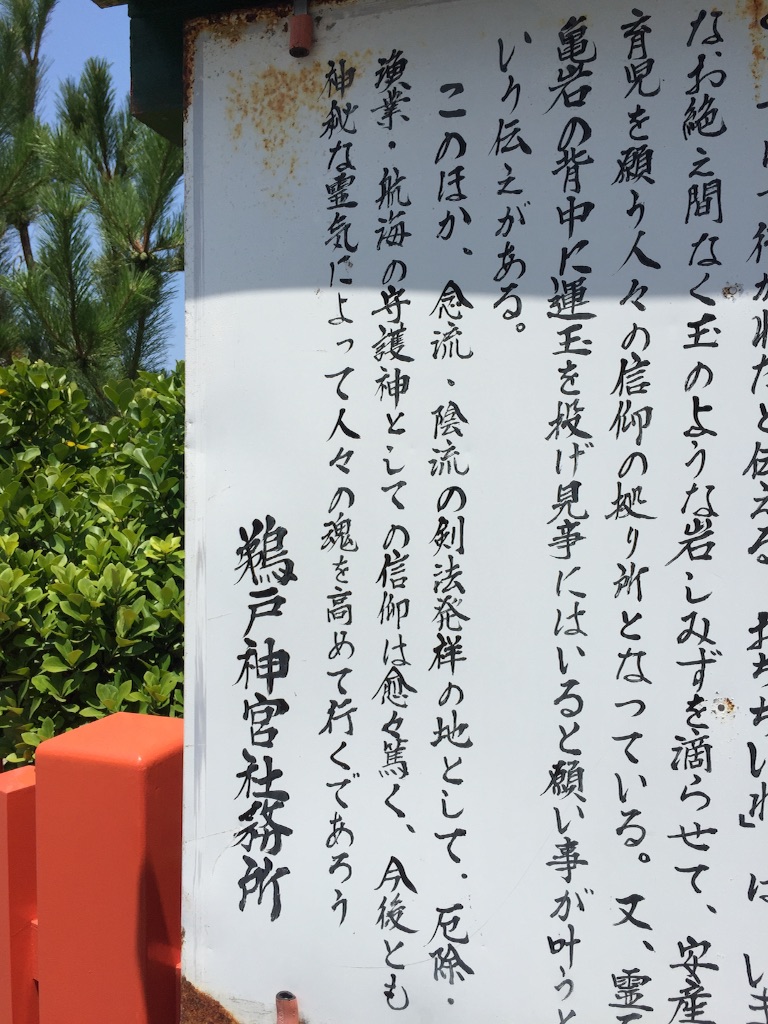 行かれたと伝える「おちちいわ」は、いま
なお絶え間なく玉のような岩しみずを滴らせて、安産
育児を願う人々の信仰の拠り所となっている。又、霊
亀岩の背中に運玉を投げ見事にはいると願い事が叶うと
いう伝えがある。
このほか、念流・陰流の剣法発祥の地として、厄除・
漁業・航海の守護神としての信仰は愈々篤く、今後とも
神秘な霊気によって人々の魂を高めて行くであろう
鵜戸神宮社務所